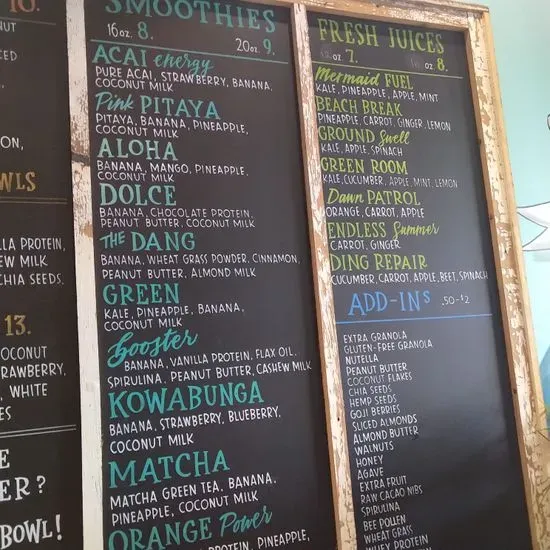 10.
WLS
LLA PROTEIN,
EW MILK
CHIA SEEDS,
13.
COCONUT
TRAWBERRY,
, WHITE
ES
E
ER?
BOWL!
SMOOTHIES
16 oz. 8.
20 oz. 9.
ACAI energy
PURE ACAI, STRAWBERRY, BANANA,
COCONUT MILK
Pink PITAYA
PITAYA, BANANA, PINEAPPLE,
COCONUT MILK
ALOHA
BANANA, MANGO, PINEAPPLE,
COCONUT MILK
DOLCE
BANANA, CHOCOLATE PROTEIN,
PEANUT BUTTER, COCONUT MILK
THE DANG
BANANA, WHEAT GRASS POWDER, CINNAMON,
PEANUT BUTTER, ALMOND MILK
GREEN
KALE, PINEAPPLE, BANANA,
COCONUT MILK
Booster
BANANA, VANILLA PROTEIN, FLAX OIL,
SPIRULINA, PEANUT BUTTER, CASHEW MILK
KOWABUNGA
BANANA, STRAWBERRY, BLUEBERRY,
COCONUT MILK
MATCHA
MATCHA GREEN TEA, BANANA,
PINEAPPLE, COCONUT MILK
ORANGE Power
PROTEIN, PINEAPPLE,
FRESH JUICES
oz 7.
oz 8.
Mermaid FUEL
KALE, PINEAPPLE, APPLE, MINT
BEACH BREAK
PINEAPPLE, CARROT, GINGER, LEMON
GROUND Swell
KALE, APPLE, SPINACH
GREEN ROOM
KALE, CUCUMBER, APPLE, MINT, LEMON
Dawn PATROL
ORANGE, CARROT, APPLE
ENDLESS Summer
CARROT, GINGER
DING REPAIR
CUCUMBER, CARROT, APPLE, BEET, SPINACH
ADD-INS .50-$2
EXTRA GRANOLA
GLUTEN-FREE GRANOLA
NUTELLA
PEANUT BUTTER
COCONUT FLAKES
CHIA SEEDS
HEMP SEEDS
GOJI BERRIES
SLICED ALMONDS
ALMOND BUTTER
WALNUTS
HONEY
AGAVE
EXTRA FRUIT
RAW CACAO NIBS
SPIRULINA
BEE POLLEN
WHEAT GRASS
WHEY PROTEIN